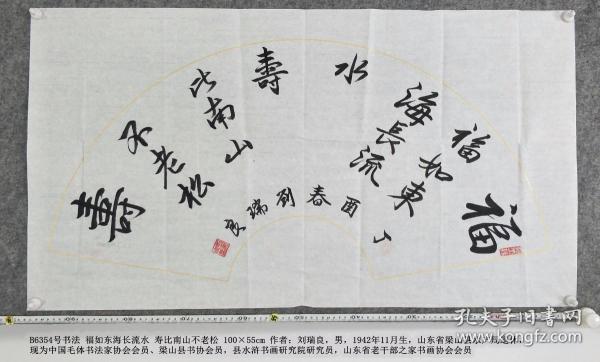 福
福如東
海長流
水
壽
比南山
不老松
壽
丁酉春刘瑞良
孔夫子旧书网
B6354号书法 福如东海长流水 寿比南山不老松 100×55cm 作者：刘瑞良，男，1942年11月生，山东省梁山县
现为中国毛体书法家协会会员、梁山县书协会员，县水浒书画研究院研究员，山东省老干部之家书画协会会员